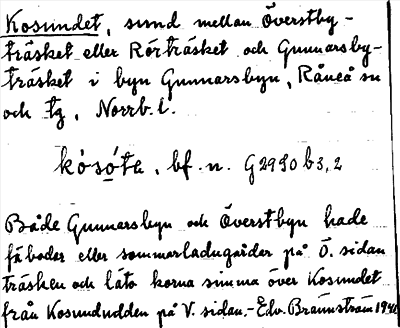 Kosundet, sund mellan Överstby-
träsket eller Rörträsket och Gunnarsby-
träsket i byn Gunnarsbyn, Råneå sn
och tg, Norrb. l.
kòsǫ́ta, bf. n. G2980 b3,2
Både Gunnarsbyn och Överstbyn hade
fäbodar eller sommarladugårdar på Ö. sidan
träsken och läto korna simma över Kosundet
från Kosundudden på V. sidan. - Edv. Brännström